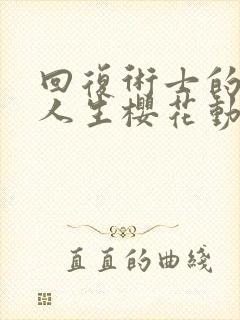 回復術士的
人生櫻花動
直直的曲綫